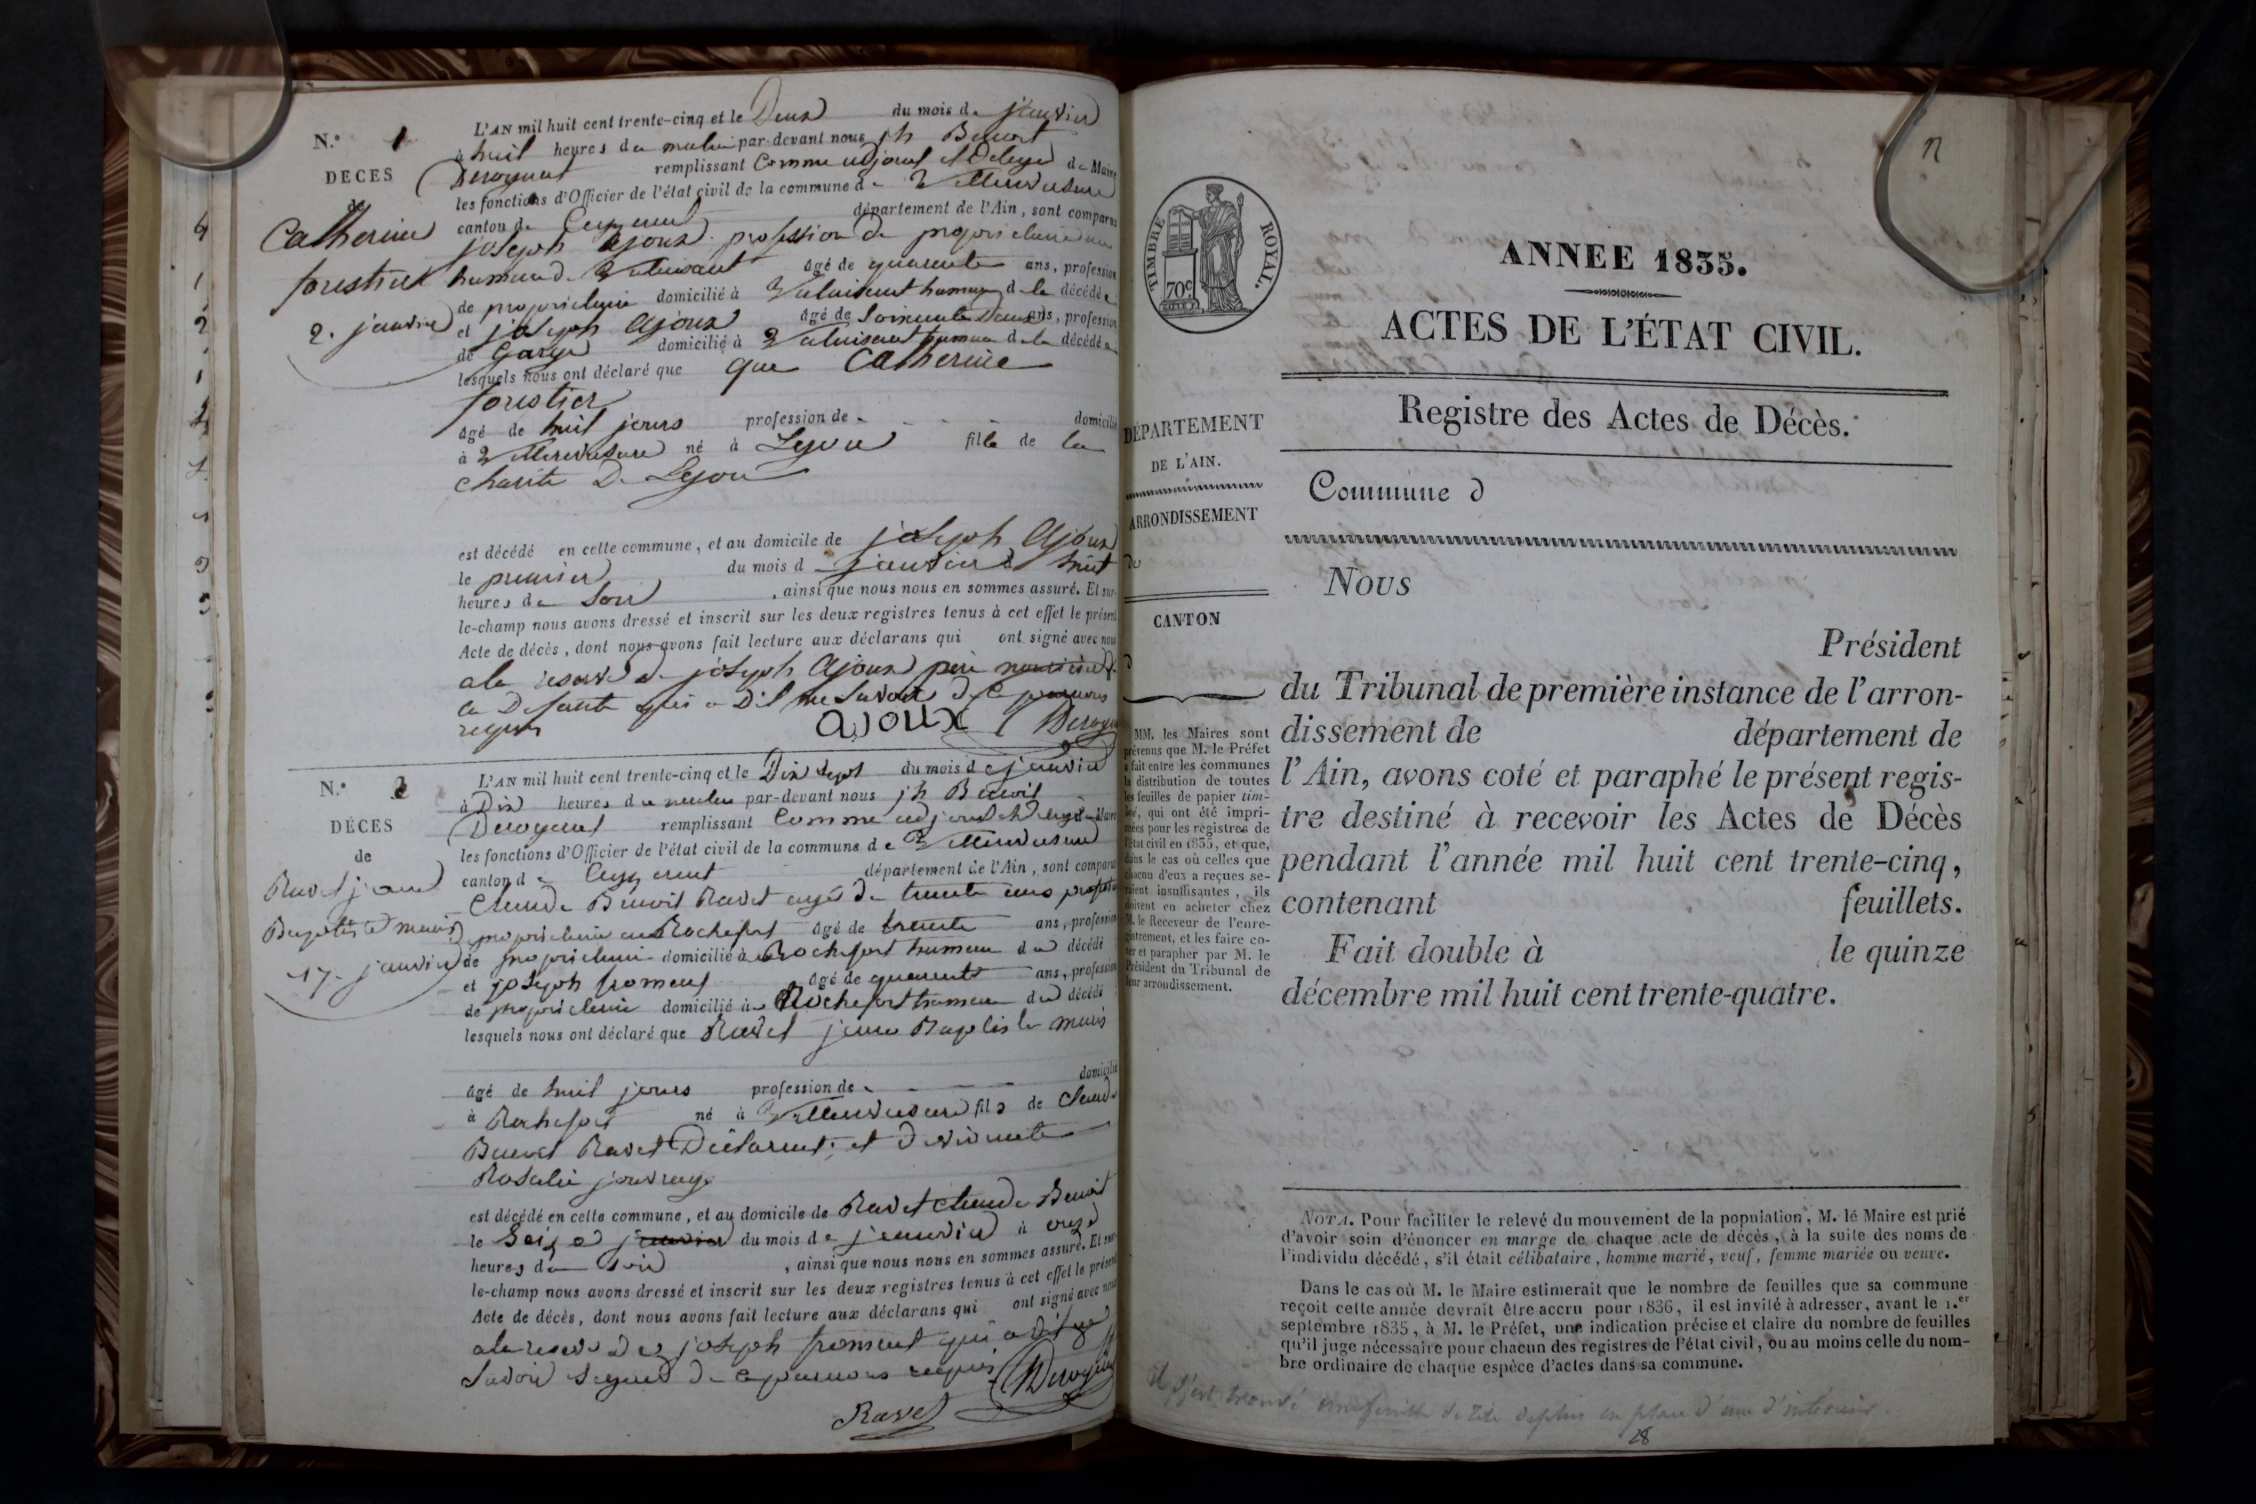 N.o 1
DÉCES
de
Catherine
forestier
2. janvier
L'AN mil huit cent trente-cinq et le Deux du mois de janvier
à huit heures du matin par-devant nous jh Benoit
Deroyent remplissant Comme adjoint et Delegué de Maire
les fonctions d'Officier de l'état civil de la commune de Villereversure
canton de Ceyzeriat département de l'Ain, sont comparus
joseph ajoux profession de propriétaire au
hameau de agé de quarante ans, profession
de propriétaire domicilié à hameau d la décédée
et joseph ajoux agé de Soixante Deux ans, profession
de domicilié à hameau de la décédée
lesquels nous ont déclaré que que Catherine
forestier
agé de huit jours profession de - domicilié
à Villereversure né à Leyon fille de la
charité De Leyon
est décédé en cette commune, et au domicile de joseph ajoux
le premier du mois d janvier à huit
heures de Soir , ainsi que nous nous en sommes assuré. Et sur-
le-champ nous avons dressé et inscrit sur les deux registres tenus à cet effet le présent
Acte de décès, dont nous avons fait lecture aux déclarans qui ont signé avec nous
a la reserve de joseph ajoux père
la Defunte qui a Dit ne Savoir de ce
requis ajoux
N.o 2
DÉCES
de
Ravet jean
Baptiste marie
17. janvier
L'AN mil huit cent trente-cinq et le Dix Sept du mois de janvier
à Dix heures du matin par-devant nous jh Benoit
Deroyent remplissant Comme adjoint et Delegué de Maire
les fonctions d'Officier de l'état civil de la commune de Villereversure
canton de Ceyzeriat département de l'Ain, sont comparus
Claude Benoit Ravet agé de trente ans profession
propriétaire au Rochefort agé de trente ans, profession
de propriétaire domicilié à Rochefort hameau du décédé
et joseph froment agé de quarante ans, profession
de propriétaire domicilié à Rochefort hameau du décédé
lesquels nous ont déclaré que Ravet jean Baptiste marie
agé de huit jours profession de - domicilié
à Rochefort né à Villereversure fils de Claude
Benoit Ravet Déclarant, et de vivante
Rosalie
est décédé en cette commune, et au domicile de Ravet Claude Benoit
le Seize janvier du mois de janvier à onze
heures du Soir , ainsi que nous nous en sommes assuré. Et sur-
le-champ nous avons dressé et inscrit sur les deux registres tenus à cet effet le présent
Acte de décès, dont nous avons fait lecture aux déclarans qui ont signé avec nous
a la reserve de joseph froment qui a dit ne
Savoir Signer de ce requis
Ravet
TIMBRE ROYAL.
70c
ANNEE 1835.
ACTES DE L'ÉTAT CIVIL.
Registre des Actes de Décès.
DÉPARTEMENT
DE L'AIN.
ARRONDISSEMENT
d
CANTON
d
MM. les Maires sont
prévenus que M. le Préfet
a fait entre les communes
la distribution de toutes
les feuilles de papier tim-
bré, qui ont été impri-
mées pour les registres de
l'état civil en 1835, et que,
dans le cas où celles que
chacun d'eux a reçues se-
raient insuffisantes, ils
doivent en acheter chez
M. le Receveur de l'enre-
gistrement, et les faire co-
ter et parapher par M. le
Président du Tribunal de
leur arrondissement.
Commune d
Nous
Président
du Tribunal de première instance de l'arron-
dissement de département de
l'Ain, avons coté et paraphé le présent regis-
tre destiné à recevoir les Actes de Décès
pendant l'année mil huit cent trente-cinq,
contenant feuillets.
Fait double à le quinze
décembre mil huit cent trente-quatre.
NOTA. Pour faciliter le relevé du mouvement de la population, M. le Maire est prié
d'avoir soin d'énoncer en marge de chaque acte de décès, à la suite des noms de
l'individu décédé, s'il était célibataire, homme marié, veuf, femme mariée ou veuve.
Dans le cas où M. le Maire estimerait que le nombre de feuilles que sa commune
reçoit cette année devrait être accru pour 1836, il est invité à adresser, avant le 1.er
septembre 1835, à M. le Préfet, une indication précise et claire du nombre de feuilles
qu'il juge nécessaire pour chacun des registres de l'état civil, ou au moins celle du nom-
bre ordinaire de chaque espèce d'actes dans sa commune.
Il s'est trouvé une feuille de tête de plus en place d'une d'intérieur.
28